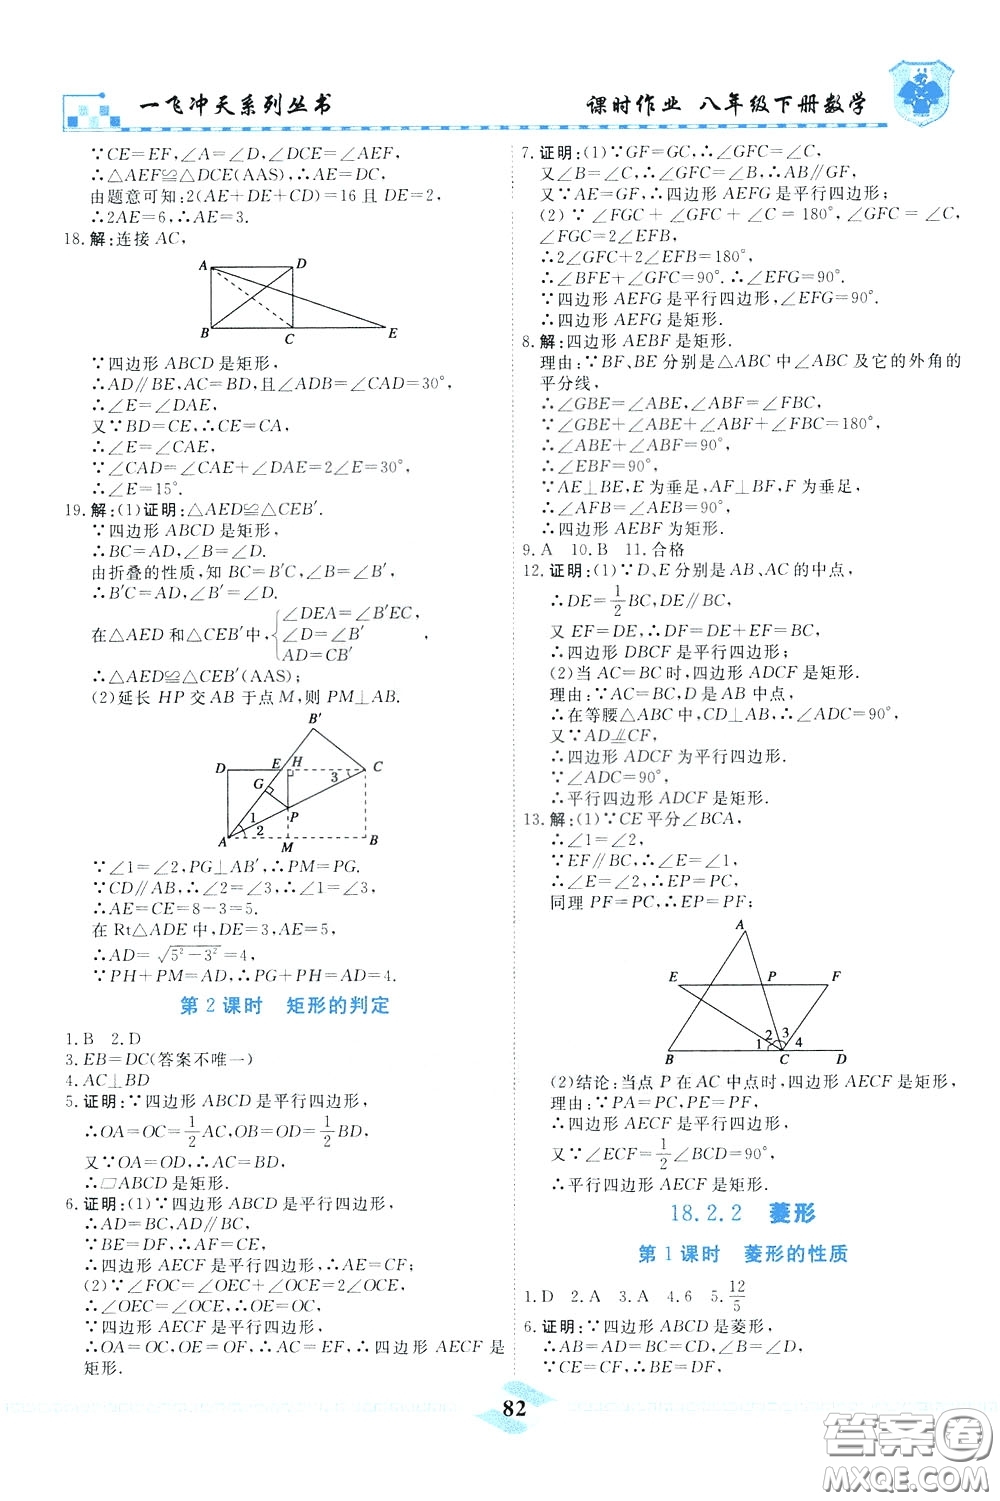 一飞冲天系列丛书
课时作业 八年级下册数学
∵CE=EF,∠A=∠D,∠DCE=∠AEF,
∴△AEF≌△DCE(AAS),∴AE=DC,
由题意可知:2(AE+DE+CD)=16且DE=2,
∴2AE=6,∴AE=3.
18.解:连接AC,
A D
B C E
∵四边形ABCD是矩形,
∴AD∥BE,AC=BD,且∠ADB=∠CAD=30°,
∴∠E=∠DAE,
又∵BD=CE,∴CE=CA,
∴∠E=∠CAE,
∵∠CAD=∠CAE+∠DAE=2∠E=30°,
∴∠E=15°.
19.解:(1)证明:△AED≌△CEB′.
∵四边形ABCD是矩形,
∴BC=AD,∠B=∠D.
由折叠的性质,知BC=B′C,∠B=∠B′,
∴B′C=AD,∠D=∠B′.
∠DEA=∠B′EC
在△AED和△CEB′中,{∠D=∠B′ ,
AD=CB′
∴△AED≌△CEB′(AAS);
(2)延长HP交AB于点M,则PM⊥AB.
B′
D E H C
G 3
1 P
A 2 M B
∵∠1=∠2,PG⊥AB′,∴PM=PG.
∵CD∥AB,∴∠2=∠3,∴∠1=∠3,
∴AE=CE=8-3=5.
在Rt△ADE中,DE=3,AE=5,
∴AD=√5²-3²=4,
∵PH+PM=AD,∴PG+PH=AD=4.
第2课时 矩形的判定
1.B 2.D
3.EB=DC(答案不唯一)
4.AC⊥BD
5.证明:∵四边形ABCD是平行四边形,
∴OA=OC=1/2AC,OB=OD=1/2BD,
又∵OA=OD,∴AC=BD,
∴□ABCD是矩形.
6.证明:(1)∵四边形ABCD是平行四边形,
∴AD=BC,AD∥BC,
∵BE=DF,∴AF=CE,
∴四边形AECF是平行四边形,∴AE=CF;
(2)∵∠FOC=∠OEC+∠OCE=2∠OCE,
∴∠OEC=∠OCE,∴OE=OC,
∵四边形AECF是平行四边形,
∴OA=OC,OE=OF,∴AC=EF,∴四边形AECF是
矩形.
7.证明:(1)∵GF=GC,∴∠GFC=∠C,
又∠B=∠C,∴∠GFC=∠B,∴AB∥GF,
又∵AE=GF,∴四边形AEFG是平行四边形;
(2)∵∠FGC+∠GFC+∠C=180°,∠GFC=∠C,
∠FGC=2∠EFB,
∴2∠GFC+2∠EFB=180°,
∴∠BFE+∠GFC=90°.∴∠EFG=90°.
∵四边形AEFG是平行四边形,∠EFG=90°.
∴四边形AEFG是矩形.
8.解:四边形AEBF是矩形.
理由:∵BF、BE分别是△ABC中∠ABC及它的外角的
平分线,
∴∠GBE=∠ABE,∠ABF=∠FBC,
∵∠GBE+∠ABE+∠ABF+∠FBC=180°,
∴∠ABE+∠ABF=90°,
∴∠EBF=90°,
∵AE⊥BE,E为垂足,AF⊥BF,F为垂足,
∴∠AFB=∠AEB=90°,
∴四边形AEBF为矩形.
9.A 10.B 11.合格
12.证明:(1)∵D、E分别是AB、AC的中点,
∴DE=1/2BC,DE∥BC,
又EF=DE,∴DF=DE+EF=BC,
∴四边形DBCF是平行四边形;
(2)当AC=BC时,四边形ADCF是矩形.
理由:∵AC=BC,D是AB中点,
∴在等腰△ABC中,CD⊥AB,∴∠ADC=90°,
又∵AD∥=CF,
∴四边形ADCF为平行四边形.
∵∠ADC=90°,
∴平行四边形ADCF是矩形.
13.解:(1)∵CE平分∠BCA,
∴∠1=∠2,
∵EF∥BC,∴∠E=∠1,
∴∠E=∠2,∴EP=PC,
同理PF=PC,∴EP=PF;
A
E P F
2 3
B 1 C 4 D
(2)结论:当点P在AC中点时,四边形AECF是矩形,
理由:∵PA=PC,PE=PF,
∴四边形AECF是平行四边形,
又∵∠ECF=1/2∠BCD=90°,
∴平行四边形AECF是矩形.
18.2.2 菱形
第1课时 菱形的性质
1.D 2.A 3.A 4.6 5.12/5
6.证明:∵四边形ABCD是菱形,
∴AB=AD=BC=DC,∠B=∠D,
∵CE=CF,∴BE=DF,
82
答案圈
MXQE.COM